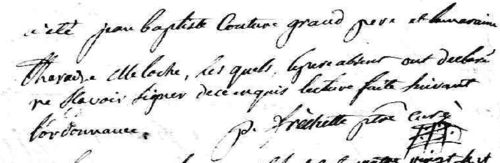 a été jean baptiste Couture grand pere et la maraine
Therese Meloche, les quels, le pere absent ont declaré
ne Scavoir signer de ce enquis lecture faite suivant
l'ordonnance.
p. fréchette ptre curé